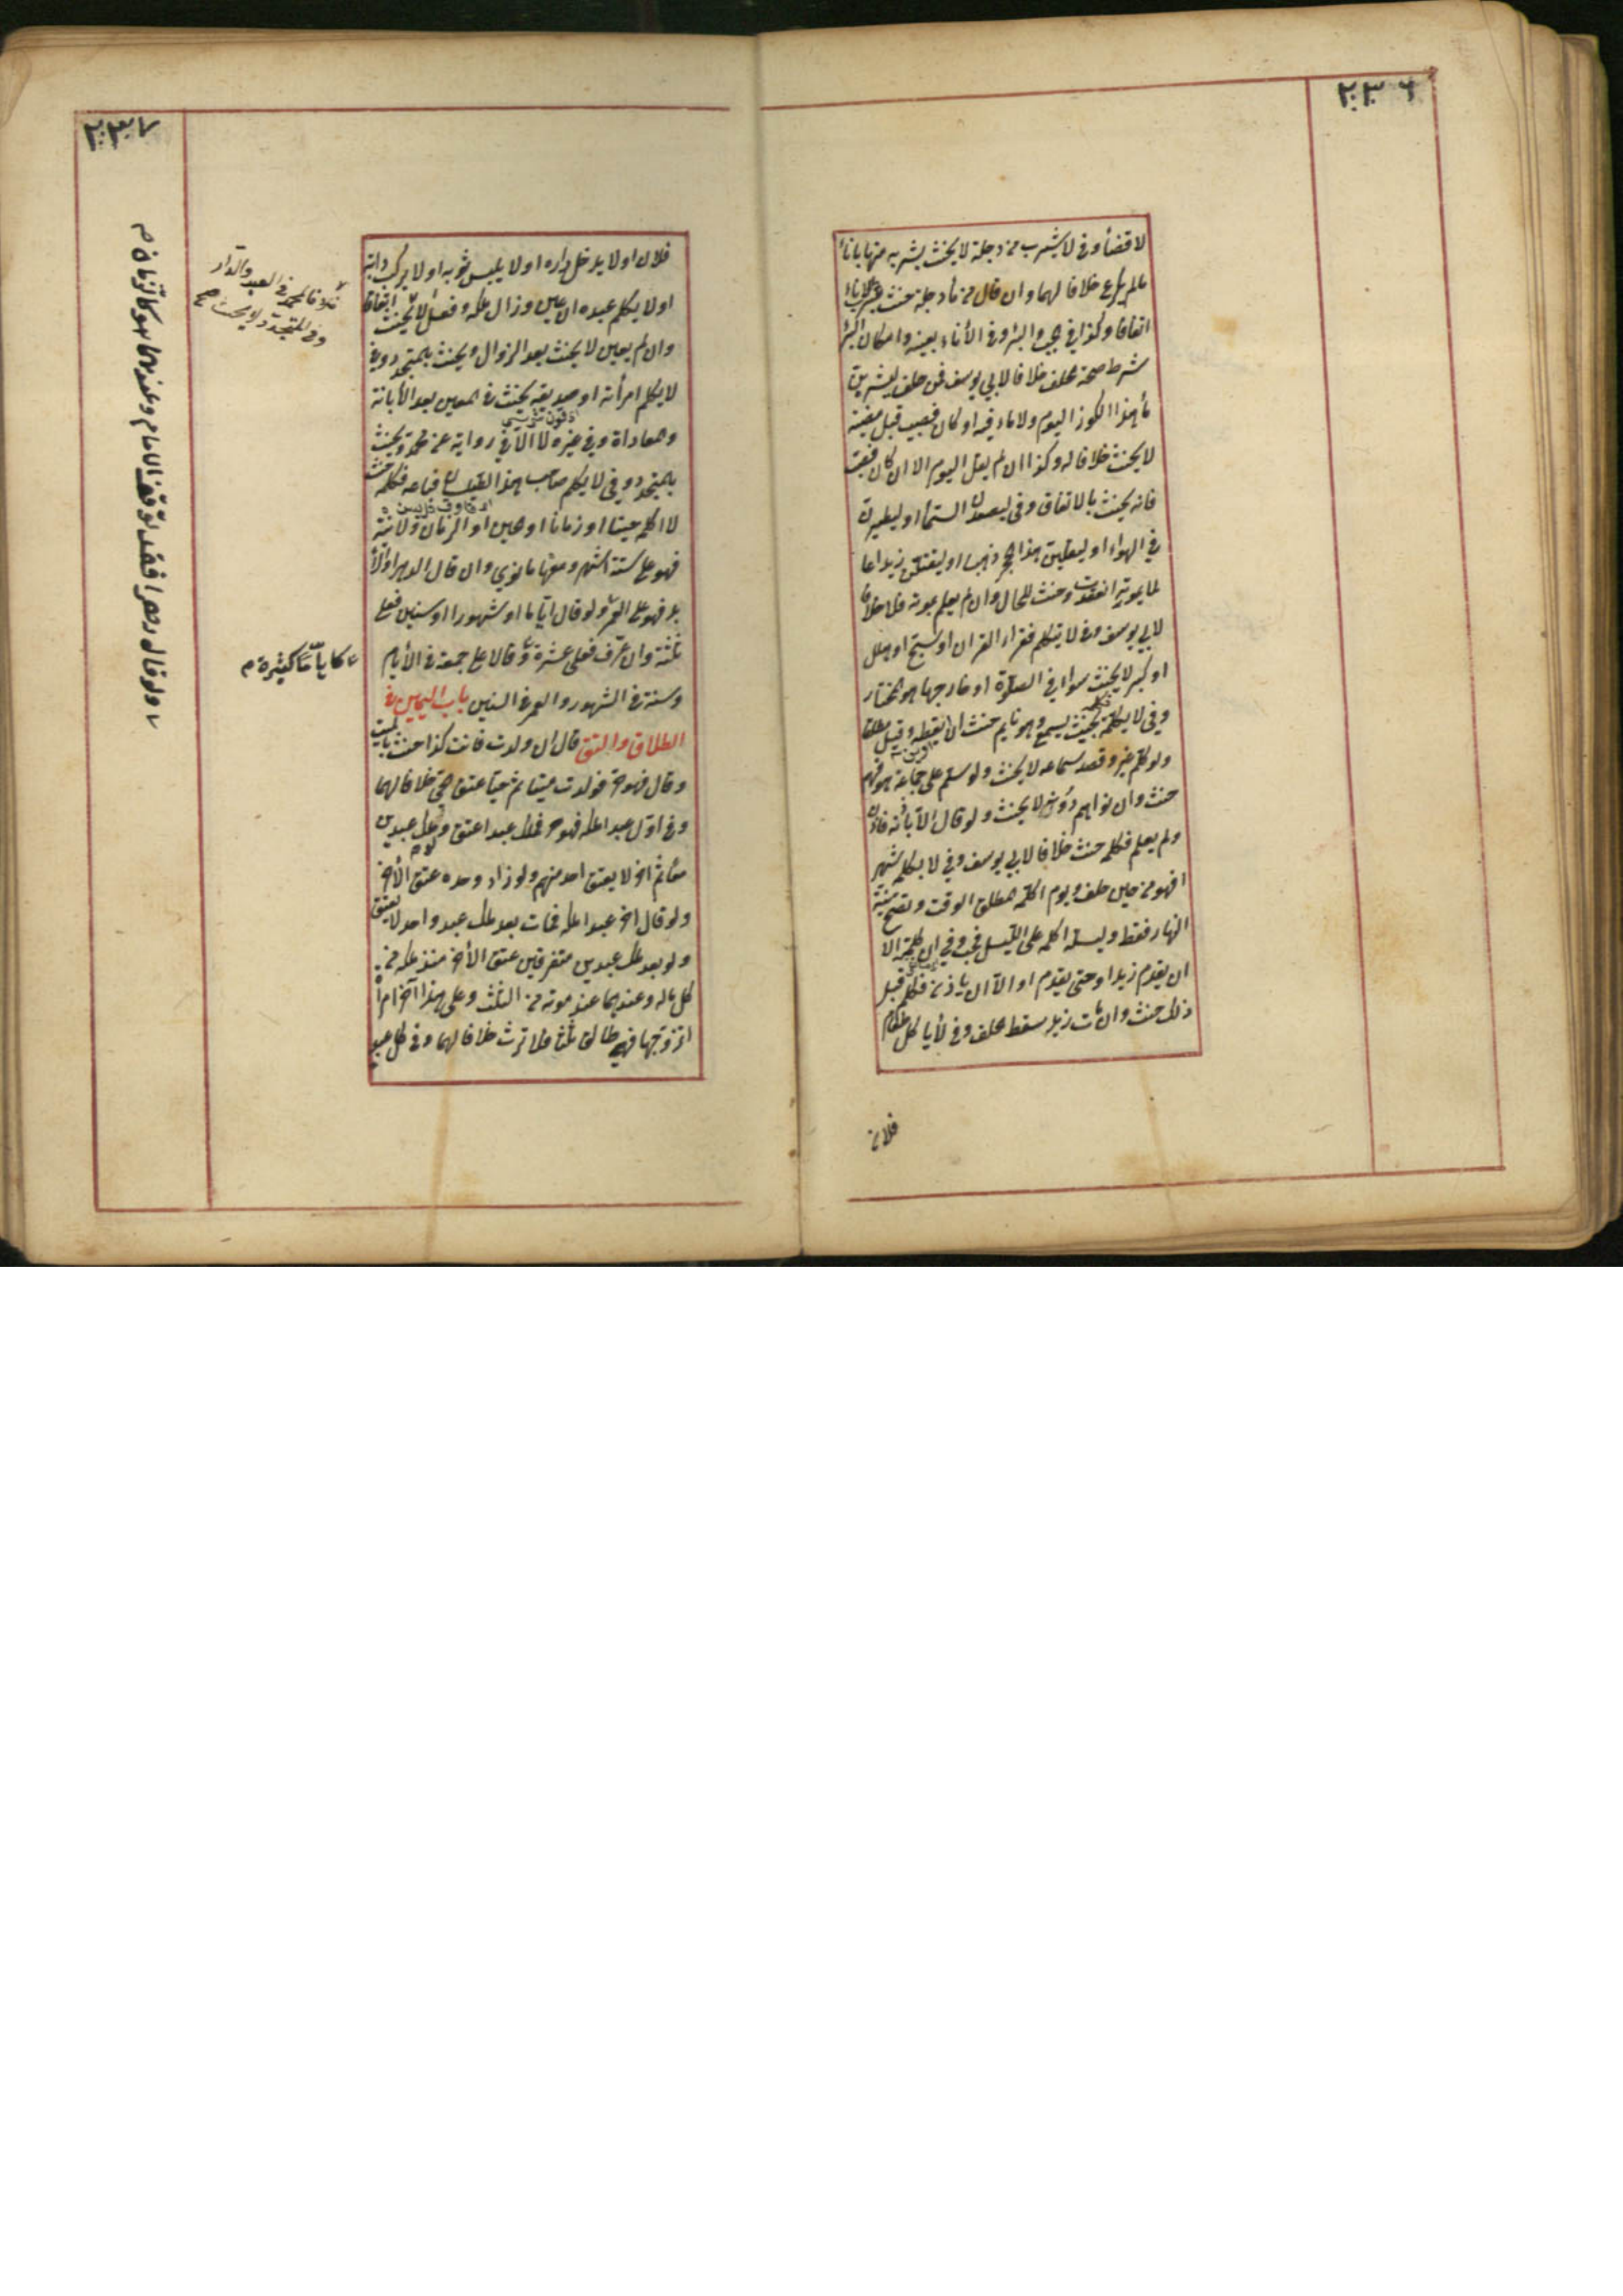 ٢٣٦
لا قضأ وفى لا يشرب من دجلة لا يحنث بشربه منها باناء
مالم يكرع خلافا لهما وان قال من ماء دجلة حنث بالاناء
اتفاقا وكذا في الجب والبئر وفى الأناء بعينه وامكان البر
شرط صحة الحلف خلافا لابي يوسف فمن حلف ليشربن
ماء هذا الكوز اليوم ولا ماء فيه او كان فصب قبل مضيه
لا يحنث خلافا له وكذا ان لم يقل اليوم الا ان كان فصب
فانه يحنث بالاتفاق وفى ليصعدن السمأ او ليطيرن
في الهواء او ليقلبن هذا الحجر ذهبا او ليقتلن زيدا عا
لما بموته انعقدت وحنث للحال وان لم يعلم بموته فلا خلافا
لابي يوسف وفى لا يتكلم فقراء القران او سبح او هلل
او كبر لا يحنث سوا في الصلوة او خارجها هو المختار
وفي لا يكلمه فكلمه بحيث يسمع وهو نايم حنث ان ايقظه وقيل مطلقا
ولو كلم غيره وقصد سماعه لا يحنث ولو سلم على جماعة هو فيهم
حنث وان نواهم دونه لا يحنث ولو قال الا باذنه فاذن
ولم يعلم فكلمه حنث خلافا لابي يوسف وفي لا يكلمه شهر
ا فهو من حين حلف ويوم اكلمه لمطلق الوقت وتصح نية
النهار فقط وليلة اكلمه على الليل فحسب وفي ان كلمته الا
ان يقدم زيد او حتى يقدم او الا ان ياذن فكلمه قبل
ذلك حنث وان مات زيد سقط الحلف وفى لا ياكل طعام
فلان
٢٣٧
فلان او لا يدخل داره او لا يلبس ثوبه او لا يركب دابته
او لا يكلم عبده ان عين وزال ملكه وفعل لا يحنث اتفاقا
وان لم يعين لا يحنث بعد الزوال ويحنث بالمتجدد وفى
لا يكلم امرأته او صديقه يحنث فى المعين بعد الأبانة
والمعاداة وفي غيره لا الا في رواية عن محمد ويحنث
بالمتجدد وفي لا يكلم صاحب هذا الطيلسان فباعه فكلمه حنث
لا اكلمه حينا او زمانا او الحين او الزمان ولا نية
فهو على ستة اشهر ومعها ما نوي وان قال الدهر او الأ
بد فهو على العمر ولو قال اياما او شهورا او سنين فعلى
ثلثة وان عرف فعلى عشرة وقالا على جمعة فى الأيام
وسنة فى الشهور والعمر فى السنين باب اليمين فى
الطلاق والعتق قال ان ولدت فانت كذا حنث بالميت
وقال فهو حر فولدت ميتا ثم حيا عتق الحى خلافا لهما
وفى اول عبد املكه فهو حر فملك عبدا عتق ولو ملك عبدين
معا ثم اخر لا يعتق احد منهم ولو زاد وحده عتق الأخر
ولو قال اخر عبد املكه فمات بعد ملك عبد واحد لا يعتق
ولو بعد ملك عبدين متفرقين عتق الأخر منذ ملكه من
كل ماله وعندهما عند موته من الثلث وعلى هذا آخر امرأة
اتزوجها فهي طالق ثلثا فلا ترث خلافا لهما وفى كل عبد
خلافا لمحمد فى العبد والدار
وفى المتجدد لا يحنث صح
كاياما كثيرة م
ولو قال دهرا فقد توقف الامام وعندهما هو كالزمان م